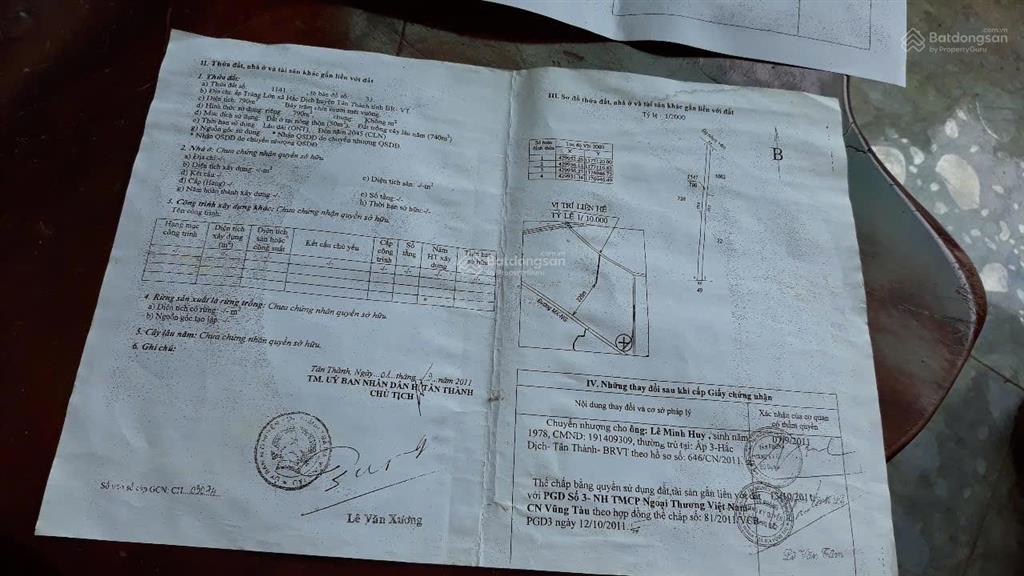 Batdongsan
by PropertyGuru
II. Thửa đất, nhà ở và tài sản khác gắn liền với đất
1. Thửa đất:
a) Thửa đất số: 1141 , tờ bản đồ số: 33
b) Địa chỉ: ấp Trảng Lớn xã Hắc Dịch huyện Tân Thành tỉnh BR- VT
c) Diện tích: 790m² Bảy trăm chín mươi mét vuông.
d) Hình thức sử dụng: riêng: 790m² ; chung: Không m²
đ) Mục đích sử dụng: Đất ở tại nông thôn (50m²); Đất trồng cây lâu năm (740m²)
e) Thời hạn sử dụng: Lâu dài (ONT); Đến năm 2045 (CLN)
g) Nguồn gốc sử dụng: * Nhận QSDĐ do chuyển nhượng QSDĐ.
* Nhận QSDĐ do chuyển nhượng QSDĐ.
2. Nhà ở: Chưa chứng nhận quyền sở hữu.
a) Địa chỉ:-/-
b) Diện tích xây dựng: -/-m²
c) Diện tích sàn: -/-m²
d) Kết cấu: -/-
đ) Cấp (Hạng):-/-
e) Số tầng:-/-
g) Năm hoàn thành xây dựng: -/-
h) Thời hạn sở hữu:-/-
3. Công trình xây dựng khác: Chưa chứng nhận quyền sở hữu.
Tên công trình:
Hạng mục công trình
Diện tích xây dựng (m²)
Diện tích sàn hoặc công suất
Kết cấu chủ yếu
Cấp công trình
Số tầng
Năm HT xây dựng
Batdongsan
by PropertyGuru
4. Rừng sản xuất là rừng trồng: Chưa chứng nhận quyền sở hữu.
a) Diện tích có rừng: -/- m²
b) Nguồn gốc tạo lập: -/-
5. Cây lâu năm: Chưa chứng nhận quyền sở hữu.
6. Ghi chú:
Tân Thành, Ngày 01 tháng 9 năm 2011
TM. UỶ BAN NHÂN DÂN H. TÂN THÀNH
CHỦ TỊCH
Lê Văn Xướng
Số vào sổ cấp GCN: CH
III. Sơ đồ thửa đất, nhà ở và tài sản khác gắn liền với đất
Tỷ lệ 1/2000
B
VỊ TRÍ LIÊN HỆ
TỶ LỆ 1/ 10.000
IV. Những thay đổi sau khi cấp Giấy chứng nhận
Nội dung thay đổi và cơ sở pháp lý
Xác nhận của cơ quan có thẩm quyền
Chuyển nhượng cho ông: Lê Minh Huy , sinh năm
1978, CMND: 191409309, thường trú tại: Ấp 3-Hắc
Dịch- Tân Thành- BRVT theo hồ sơ số: 646/CN/2011.
Thế chấp bằng quyền sử dụng đất,tài sản gắn liền với đất
với PGD Số 3- NH TMCP Ngoại Thương Việt Nam
CN Vũng Tàu theo hợp đồng thế chấp số: 81/2011/VCB-
PGD3 ngày 12/10/2011.
Batdongsan
by PropertyGuru